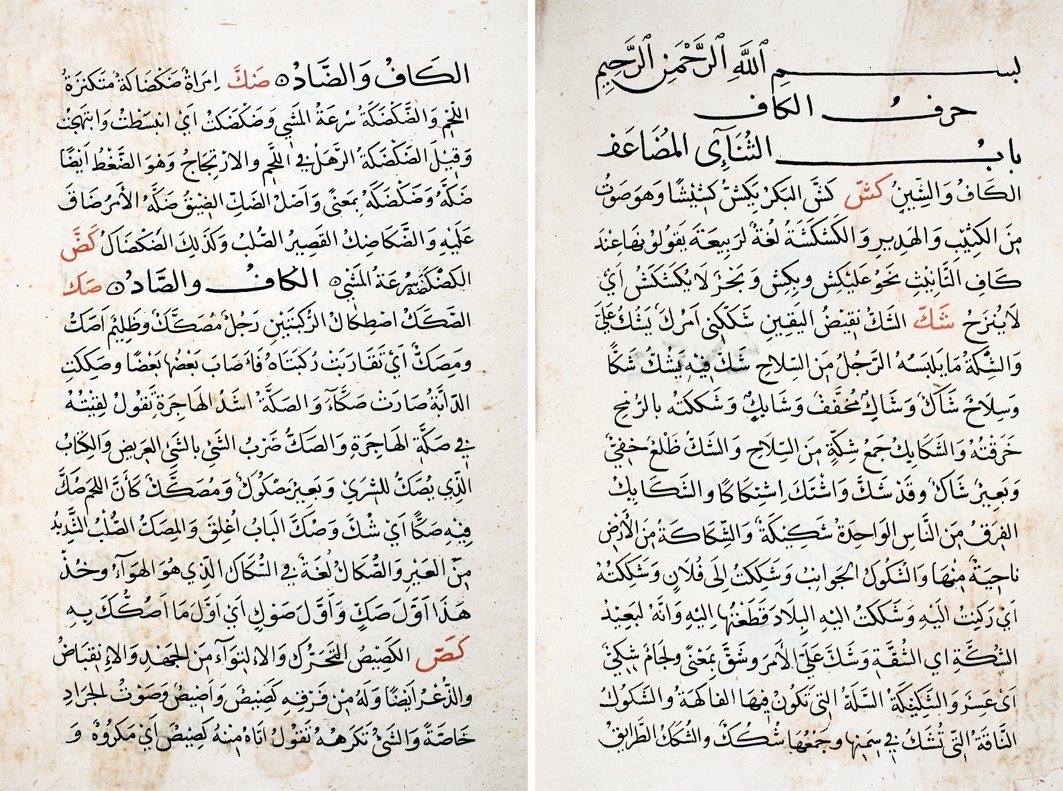 بسم الله الرحمن الرحيم
حرف الكاف
باب الثنآئي المضاعف
الكاف والشين كش كش البكر يكش كشيشا وهو صوت
من الكتيت والهدير والكشكشة لغة لربيعة يقولونها عند
كاف التانيث نحو عليكش وبكش وبحر لا يكشكش أي
لا ينزح شك الشك نقيض اليقين شككني امرك يشك علي
والشكة ما يلبسه الرجل من السلاح شك فيه يشك شكا
وسلاح شاك وشاك مخفف وشايك وشككته بالرمح
خرقته والشكايك جمع شكة من السلاح والشك ظلع خفي
وبعير شاك وقد شك واشتك اشتكاكا والشكايك
الفرق من الناس الواحدة شكيكة والشكاكة من الأرض
ناحية منها والشكوك الجوانب وشككت الى فلان وشككته
اي ركبت اليه وشككت اليه البلاد قطعتها اليه وانه لبعيد
الشكة اي الشقة وشك علي الأمر وشق بمعنى ولجام شكي
اي عسر والشكيكة السلة التي تكون فيها الفاكهة والشكوك
الناقة التي تشك في سمنها وجمعها شكك والشكك الطرايق
الكاف والضاد ضك امراة ضكضاكة متكنزة
اللحم والضكضكة سرعة المشي وضكضكت اي انبسطت وابتهجت
وقيل الضكضكة الرهل في اللحم والارتجاج وهو الضغط ايضا
ضكه وضكضكه بمعنى واصل الضك الضيق ضكه الأمر ضاق
عليه والضكاضك القصير الصلب وكذلك الضكضاك كض
الكضكضة سرعة المشي الكاف والصاد صك
الصكك اصطكاك الركبتين رجل مصكك وظليم اصك
ومصك اي تقاربت ركبتاه فاصاب بعضها بعضا وصككت
الدابة صارت صكآء والصكة اشد الهاجرة تقول لقيته
في صكة الهاجرة والصك ضرب الشي بالشي العريض والكتاب
الذي يصك للشرى وبعير مصكوك ومصكك كأن اللحم صك
فيه صكا اي شك وصك الباب اغلق والمصك الصلب الشديد
من العير والصكاك لغة في السكاك الذي هو الهوآء وخذ
هذا اول صك واول صوك اي اول ما اصكك به
كص الكصيص التحرك والالتوآء من الجهد والانقباض
والذعر ايضا وله من فرقه كصيص واصيص وصوت الجراد
خاصة والشي تكرهه تقول اتاه منه كصيص اي مكروه و